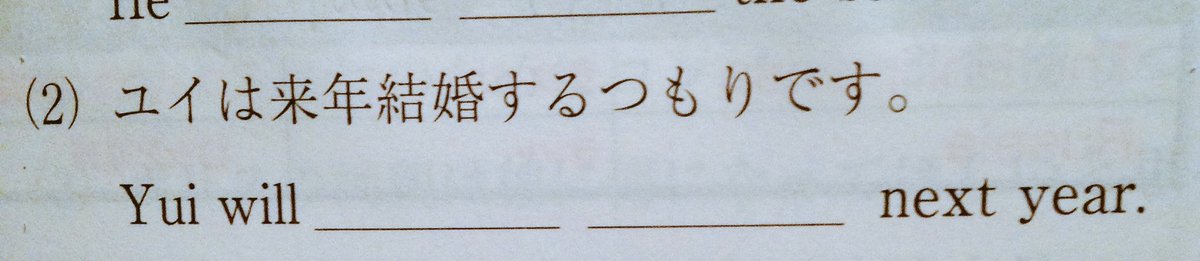 he ______ ______ the
(2) ユイは来年結婚するつもりです。
Yui will ______ ______ next year.